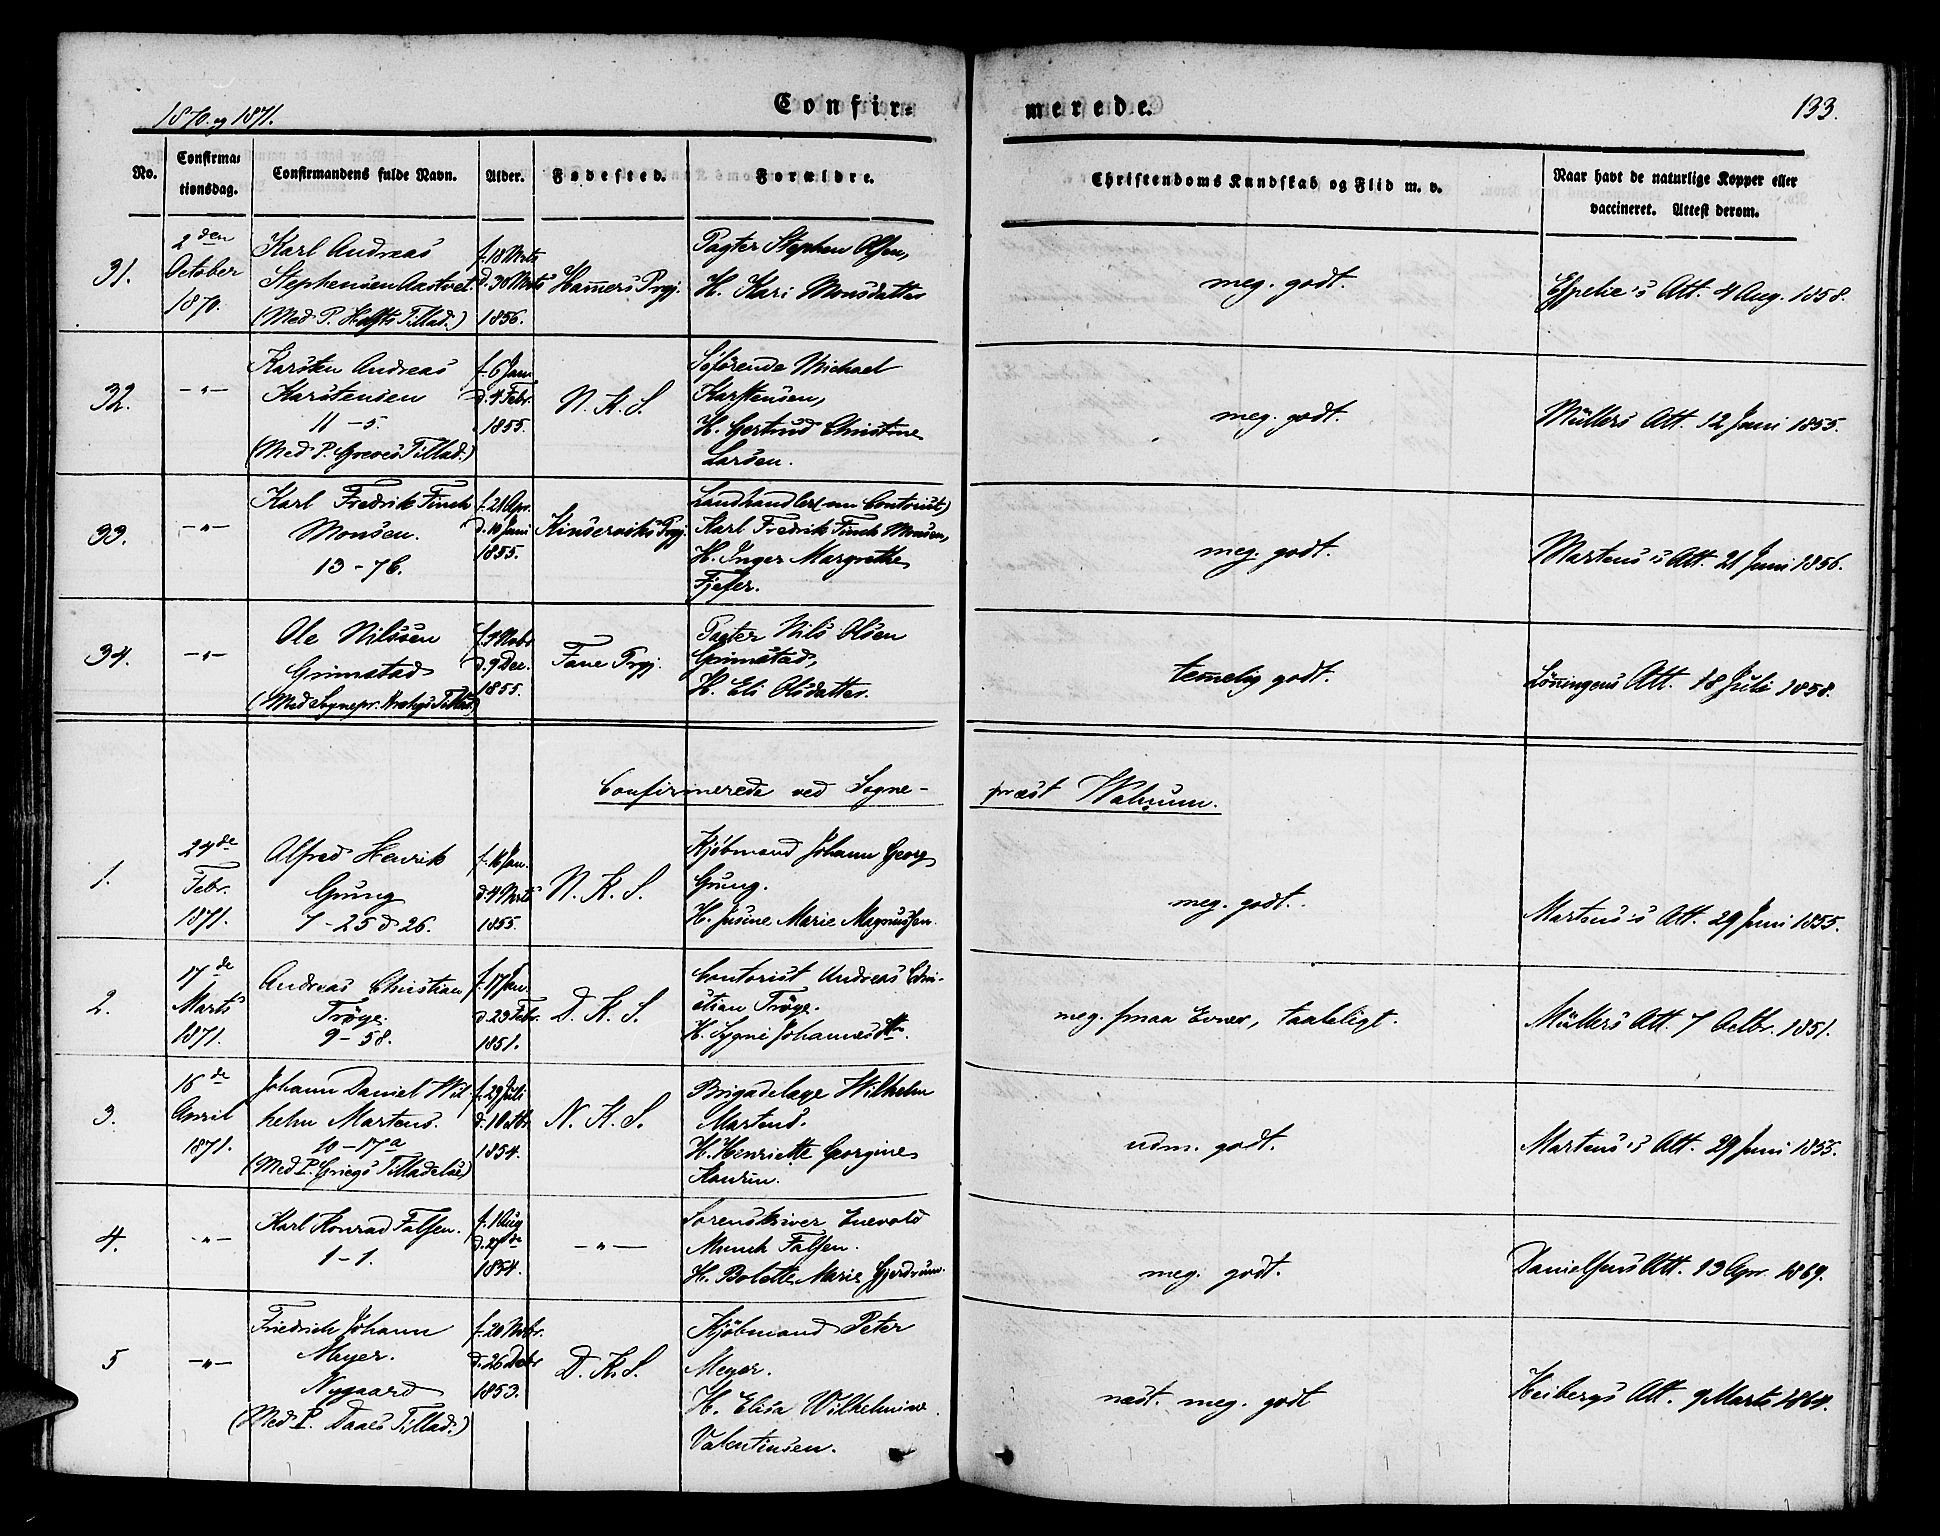 1870 og 1871.
Confirmerede.
133.
No.
Confirmationsdag.
Confirmandens fulde Navn.
Alder.
Fødested.
Forældre.
Christendoms Kundskab og Flid m. v.
Naar havt de naturlige Kopper eller
vaccineret. Attest derom.
31.
2den
October
1870.
Karl Andreas
Stephensen
(Med P. Tillad.)
f. 18 Mrts
d. 30 Mrts
1856.
Hammers Prgj.
Pagter Stephen Olsen,
H. Kari Monsdatter
meg. godt.
Espelie's Att. 4 Aug. 1858.
32.
-"-
Karsten Andreas
Karstensen
11-5.
(Med P. Greves Tillad.)
f. 6 Jan.
d. 4 Febr.
1855.
N. K. S.
Søfarende Michael
Karstensen,
H. Gertrud Christine
Larsen.
meg. godt.
Müllers Att. 12 Juni 1855.
33.
-"-
Karl Fredrik Finch
Monsen.
13-76.
f. 21 Apr.
d. 10 Juni
1855.
Kinserviks Prgj.
Landhandler (nu Contorist)
Karl Fredrik Finch Monsen,
H. Inger Margrethe
meg. godt.
Martens's Att. 21 Juni 1856.
34.
-"-
Ole Nilssen
Grimstad
(Med Sognepr. Tillad.)
f. 9 Novbr.
d. 9 Dec.
1855.
Fane Prgj.
Pagter Nils Olsen
Grimstad,
H. Eli Olsdatter.
temelig godt.
Lønningens Att. 18 Juli 1858.
Confirmerede ved Sognepræst Walnum.
1.
24de
Febr.
1871.
Alfred Henrik
Grung
7-25 & 26.
f. 16 Jan.
d. 4 Mrts
1855.
N. K. S.
Kjøbmand Johann Georg
Grung.
H. Justine Marie Magnussen.
meg. godt.
Martens's Att. 29 Juni 1855.
2.
17de
Marts
1871.
Andreas Christian
Trøye.
9-58.
f. 17 Jan.
d. 23 Febr.
1851.
D. K. S.
Contorist Andreas Christian Trøye.
H. Sygni Johannesdtr.
meg. smaa Evner, taaleligt.
Müllers Att. 7 Octbr. 1851.
3.
16de
April
1871.
Johann Daniel Wilhelm Martens.
10-17a
(Med P. Griegs Tilladelse)
f. 29 Juli
d. 1 Octbr.
1854.
N. K. S.
Brigadelæge Wilhelm
Martens.
H. Henriette Georgine
meg. godt.
Martens's Att. 29 Juni 1855.
4.
-"-
Karl Konrad Falsen.
1-1.
f. 1 Aug
d. 27de
1854.
-"-
Sorenskriver Enevold
Munch Falsen.
H. Bolette Marie Gjerdrum.
meg. godt.
Danielsens Att. 13 Apr. 1869.
5
-"-
Friedrich Johann
Meyer.
Nygaard
(Med P. Daaes Tillad.)
f. 20 Novbr.
d. 26 Debr.
1853.
D. K. S.
Kjøbmand Peter
Meyer.
H. Elisa Wilhelmine
Valentinsen.
næst. meg. godt
Heibergs Att. 9 Marts 1864.